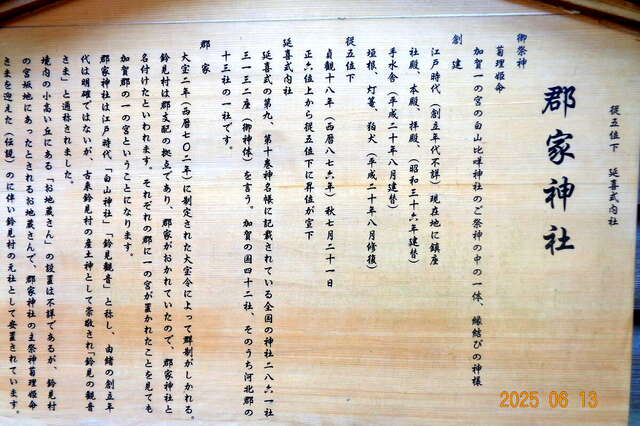 従五位下 延喜式内社
郡家神社
御祭神
菊理姫命
加賀一の宮の白山比咩神社のご祭神の中の一体、縁結びの神様
創建
江戸時代(創立年代不詳)現在地に鎮座
社殿、本殿、拝殿、(昭和三十六年建替)
手水舎(平成二十年八月建替)
垣根、灯篭、狛犬(平成二十年八月修復)
従五位下
貞観十八年(西暦八七六年)秋七月二十一日
正六位上から従五位下に昇位が宣下
延喜式内社
延喜式の第九、第十巻神名帳に記載されている全国の神社二八六一社
三一三二座(御神体)を言う。加賀の国四十二社、そのうち河北郡の
十三社の一社です。
郡家
大宝二年(西暦七〇二年)に制定された大宝令によって郡制がしかれる。
鈴見村は郡支配の拠点であり、郡家がおかれていたので、郡家神社と
名付けたといわれます。それぞれの郡に一の宮が置かれたことを見ても
加賀郡の一の宮ということになります。
郡家神社は江戸時代「白山神社」「鈴見観音」と称し、由緒の創立年
代は明確ではないが、古来鈴見村の産土神として崇敬され「鈴見の観音
さま」と通称されました。
境内の小高い丘にある「お地蔵さん」の設置は不詳であるが、鈴見村
の宮坂地にあったとされるお地蔵さんで、郡家神社の主祭神菊理姫命
さまを迎えた(伝説)のに伴い鈴見村の元社として安置されています。
2025 06 13